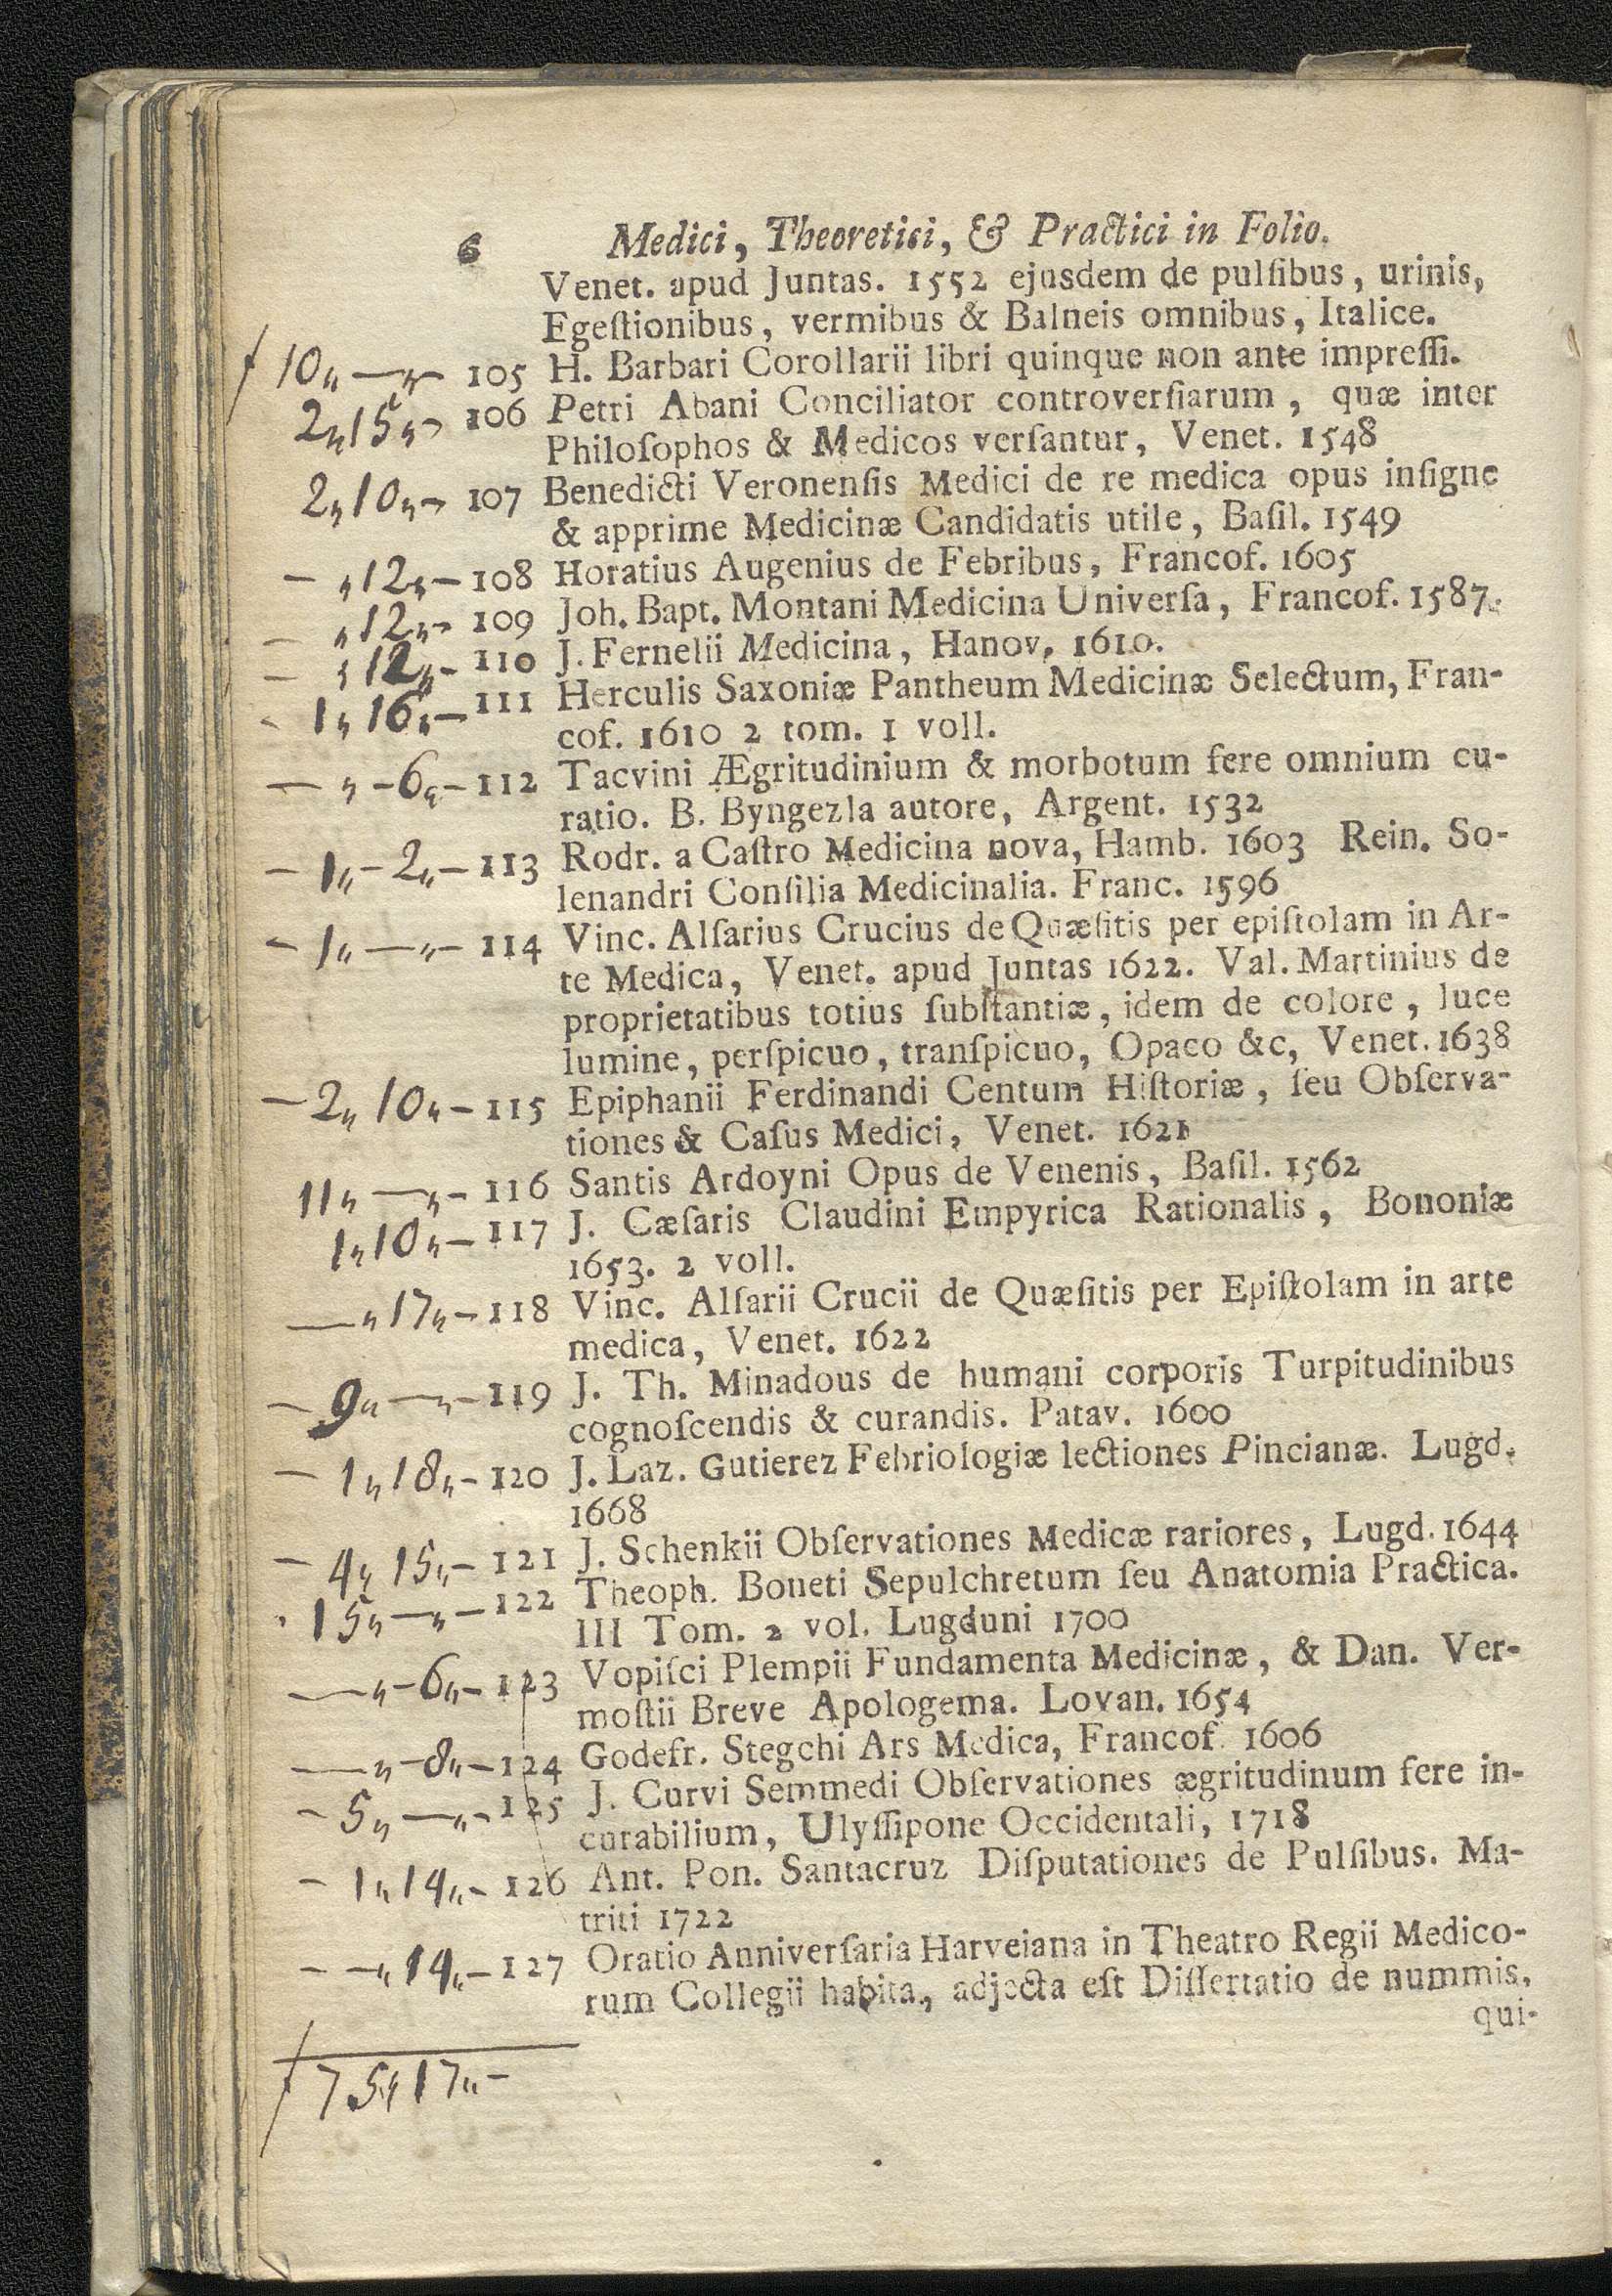 6 Medici, Theoretici, & Practici in Folio.
Venet. apud Juntas. 1552 ejusdem de pulſibus, urinis,
Egeſtionibus, vermibus & Balneis omnibus, Italice.
ƒ 10〃—〃- 105 H. Barbari Corollarii libri quinque non ante impreſſi.
2〃15〃- 106 Petri Abani Conciliator controverſiarum, quæ inter
Philoſophos & Medicos verſantur, Venet. 1548
2〃10〃- 107 Benedicti Veronenſis Medici de re medica opus inſigne
& apprime Medicinæ Candidatis utile, Baſil. 1549
- 〃12〃- 108 Horatius Augenius de Febribus, Francof. 1605
- 〃12〃- 109 Joh. Bapt. Montani Medicina Univerſa, Francof. 1587.
- 〃12〃- 110 J. Fernelii Medicina, Hanov. 1610.
- 1〃16〃- 111 Herculis Saxoniæ Pantheum Medicinæ Selectum, Fran-
cof. 1610 2 tom. 1 voll.
— 〃-6〃- 112 Tacvini Ægritudinium & morbotum fere omnium cu-
ratio. B. Byngezla autore, Argent. 1532
- 1〃-2〃- 113 Rodr. a Caſtro Medicina nova, Hamb. 1603 Rein. So-
lenandri Conſilia Medicinalia. Franc. 1596
- 1〃—〃- 114 Vinc. Alſarius Crucius de Quæſitis per epiſtolam in Ar-
te Medica, Venet. apud Juntas 1622. Val. Martinius de
proprietatibus totius ſubſtantiæ, idem de colore, luce
lumine, perſpicuo, tranſpicuo, Opaco &c, Venet. 1638
- 2〃10〃- 115 Epiphanii Ferdinandi Centum Hiſtoriæ, ſeu Obſerva-
tiones & Caſus Medici, Venet. 1621
11〃—〃- 116 Santis Ardoyni Opus de Venenis, Baſil. 1562
1〃10〃- 117 J. Cæſaris Claudini Empyrica Rationalis, Bononiæ
1653. 2 voll.
—〃17〃- 118 Vinc. Alſarii Crucii de Quæſitis per Epiſtolam in arte
medica, Venet. 1622
- 9〃—〃- 119 J. Th. Minadous de humani corporis Turpitudinibus
cognoſcendis & curandis. Patav. 1600
- 1〃18〃- 120 J. Laz. Gutierez Febriologiæ lectiones Pincianæ. Lugd.
1668
- 4〃15〃- 121 J. Schenkii Obſervationes Medicæ rariores, Lugd. 1644
15〃—〃- 122 Theoph. Boneti Sepulchretum ſeu Anatomia Practica.
III Tom. 2 vol. Lugduni 1700
—〃-6〃- 123 Vopiſci Plempii Fundamenta Medicinæ, & Dan. Ver-
moſtii Breve Apologema. Lovan. 1654
—〃-8〃- 124 Godefr. Stegchi Ars Medica, Francof. 1606
- 5〃—〃- 125 J. Curvi Semmedi Obſervationes ægritudinum fere in-
curabilium, Ulyſſipone Occidentali, 1718
- 1〃14〃- 126 Ant. Pon. Santacruz Diſputationes de Pulſibus. Ma-
triti 1722
- -〃14〃- 127 Oratio Anniverſaria Harveiana in Theatro Regii Medico-
rum Collegii habita, adjecta eſt Diſſertatio de nummis,
qui-
ƒ 75〃17〃-